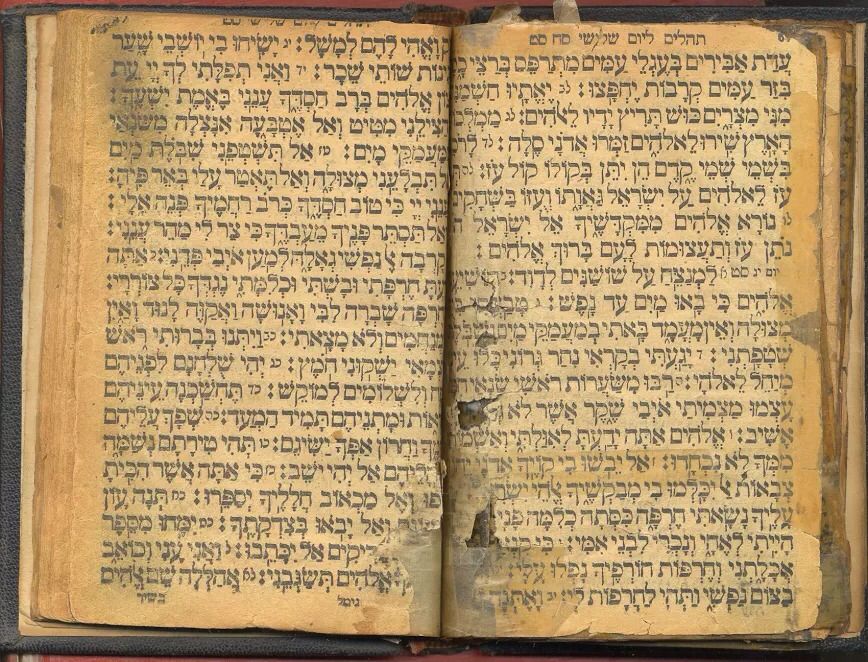 תהלים ליום שלישי סח סט
עֲדַת אַבִּירִים בְּעֶגְלֵי עַמִּים מִתְרַפֵּס בְּרַצֵּי
בִּזַּר עַמִּים קְרָבוֹת יֶחְפָּצוּ: לב יֶאֱתָיוּ
מִנִּי מִצְרָיִם כּוּשׁ תָּרִיץ יָדָיו לֵאלֹהִים: לג
הָאָרֶץ שִׁירוּ לֵאלֹהִים זַמְּרוּ אֲדֹנָי סֶלָה: לד
בִּשְׁמֵי שְׁמֵי קֶדֶם הֵן יִתֵּן בְּקוֹלוֹ קוֹל עֹז:
עֹז לֵאלֹהִים עַל יִשְׂרָאֵל גַּאֲוָתוֹ וְעֻזּוֹ בַּשְּׁחָקִים:
לו נוֹרָא אֱלֹהִים מִמִּקְדָּשֶׁיךָ אֵל יִשְׂרָאֵל
נֹתֵן עֹז וְתַעֲצֻמוֹת לָעָם בָּרוּךְ אֱלֹהִים:
יום יג סט לַמְנַצֵּחַ עַל שׁוֹשַׁנִּים לְדָוִד:
אֱלֹהִים כִּי בָאוּ מַיִם עַד נָפֶשׁ:
מְצוּלָה וְאֵין מָעֳמָד בָּאתִי בְמַעֲמַקֵּי מַיִם
שְׁטָפָתְנִי: ד יָגַעְתִּי בְקָרְאִי נִחַר גְּרוֹנִי כָּלוּ
מְיַחֵל לֵאלֹהָי: ה רַבּוּ מִשַּׂעֲרוֹת רֹאשִׁי שֹׂנְאַי
עָצְמוּ מַצְמִיתַי אֹיְבַי שֶׁקֶר אֲשֶׁר לֹא
אָשִׁיב: ו אֱלֹהִים אַתָּה יָדַעְתָּ לְאִוַּלְתִּי
מִמְּךָ לֹא נִכְחָדוּ: ז אַל יֵבֹשׁוּ בִי קֹוֶיךָ אֲדֹנָי
צְבָאוֹת אַל יִכָּלְמוּ בִי מְבַקְשֶׁיךָ אֱלֹהֵי
עָלֶיךָ נָשָׂאתִי חֶרְפָּה כִּסְּתָה כְלִמָּה פָנָי:
הָיִיתִי לְאֶחָי וְנָכְרִי לִבְנֵי אִמִּי:
אֲכָלָתְנִי וְחֶרְפּוֹת חוֹרְפֶיךָ נָפְלוּ עָלָי:
בַצּוֹם נַפְשִׁי וַתְּהִי לַחֲרָפוֹת לִי: יב וָאֶתְּנָה
וָאֱהִי לָהֶם לְמָשָׁל: יג יָשִׂיחוּ בִי יוֹשְׁבֵי שָׁעַר
שׁוֹתֵי שֵׁכָר: יד וַאֲנִי תְפִלָּתִי לְךָ יְיָ עֵת
אֱלֹהִים בְּרָב חַסְדֶּךָ עֲנֵנִי בֶּאֱמֶת יִשְׁעֶךָ:
הַצִּילֵנִי מִטִּיט וְאַל אֶטְבָּעָה אִנָּצְלָה מִשֹּׂנְאַי
וּמִמַּעֲמַקֵּי מָיִם: טז אַל תִּשְׁטְפֵנִי שִׁבֹּלֶת מַיִם
תִּבְלָעֵנִי מְצוּלָה וְאַל תֶּאְטַר עָלַי בְּאֵר פִּיהָ:
עֲנֵנִי יְיָ כִּי טוֹב חַסְדֶּךָ כְּרֹב רַחֲמֶיךָ פְּנֵה אֵלָי:
וְאַל תַּסְתֵּר פָּנֶיךָ מֵעַבְדֶּךָ כִּי צַר לִי מַהֵר עֲנֵנִי:
קָרְבָה אֶל נַפְשִׁי גְאָלָהּ לְמַעַן אֹיְבַי פְּדֵנִי: כ אַתָּה
יָדַעְתָּ חֶרְפָּתִי וּבָשְׁתִּי וּכְלִמָּתִי נֶגְדְּךָ כָּל צוֹרְרָי:
שָׁבְרָה לִבִּי וָאָנוּשָׁה וָאֲקַוֶּה לָנוּד וָאַיִן
וְלַמְנַחֲמִים וְלֹא מָצָאתִי: כב וַיִּתְּנוּ בְּבָרוּתִי רֹאשׁ
וְלִצְמָאִי יַשְׁקוּנִי חֹמֶץ: כג יְהִי שֻׁלְחָנָם לִפְנֵיהֶם
וְלִשְׁלוֹמִים לְמוֹקֵשׁ: כד תֶּחְשַׁכְנָה עֵינֵיהֶם
וּמָתְנֵיהֶם תָּמִיד הַמְעַד: כה שְׁפָךְ עֲלֵיהֶם
וַחֲרוֹן אַפְּךָ יַשִּׂיגֵם: כו תְּהִי טִירָתָם נְשַׁמָּה
אַל יְהִי יֹשֵׁב: כז כִּי אַתָּה אֲשֶׁר הִכִּיתָ
וְאֶל מַכְאוֹב חֲלָלֶיךָ יְסַפֵּרוּ: כח תְּנָה עָוֹן
וְאַל יָבֹאוּ בְּצִדְקָתֶךָ: כט יִמָּחוּ מִסֵּפֶר
אַל יִכָּתֵבוּ: ל וַאֲנִי עָנִי וְכוֹאֵב
אֱלֹהִים תְּשַׂגְּבֵנִי: לא אֲהַלְלָה שֵׁם אֱלֹהִים
בשיר